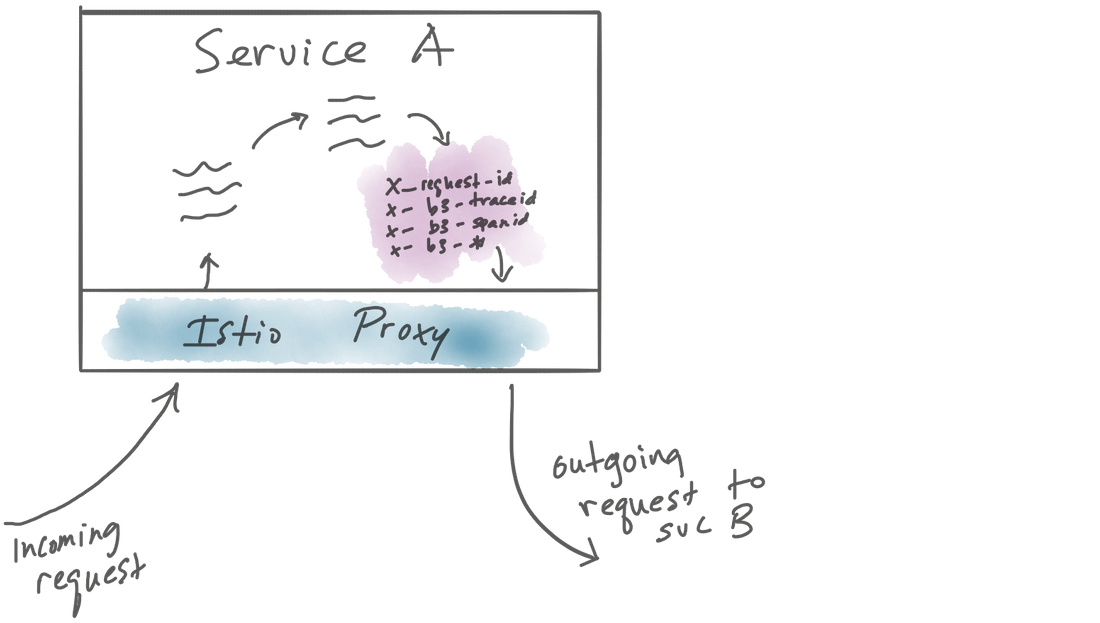 Service A
x-request-id
x-b3-traceid
x-b3-spanid
x-b3-*
Istio Proxy
Incoming
request
outgoing
request to
svc B